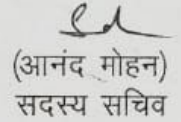 Sd
(आनंद मोहन)
सदस्य सचिव